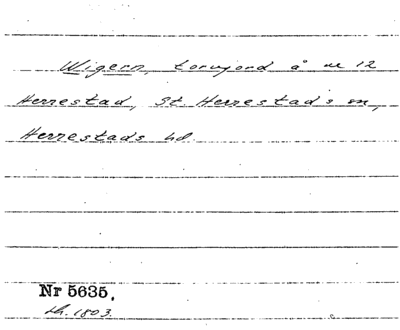 Wigern, torvjord å nr 12
Herrestad, St. Herrestads sn,
Herrestads hd.
Nr 5635.
Lh. 1803.